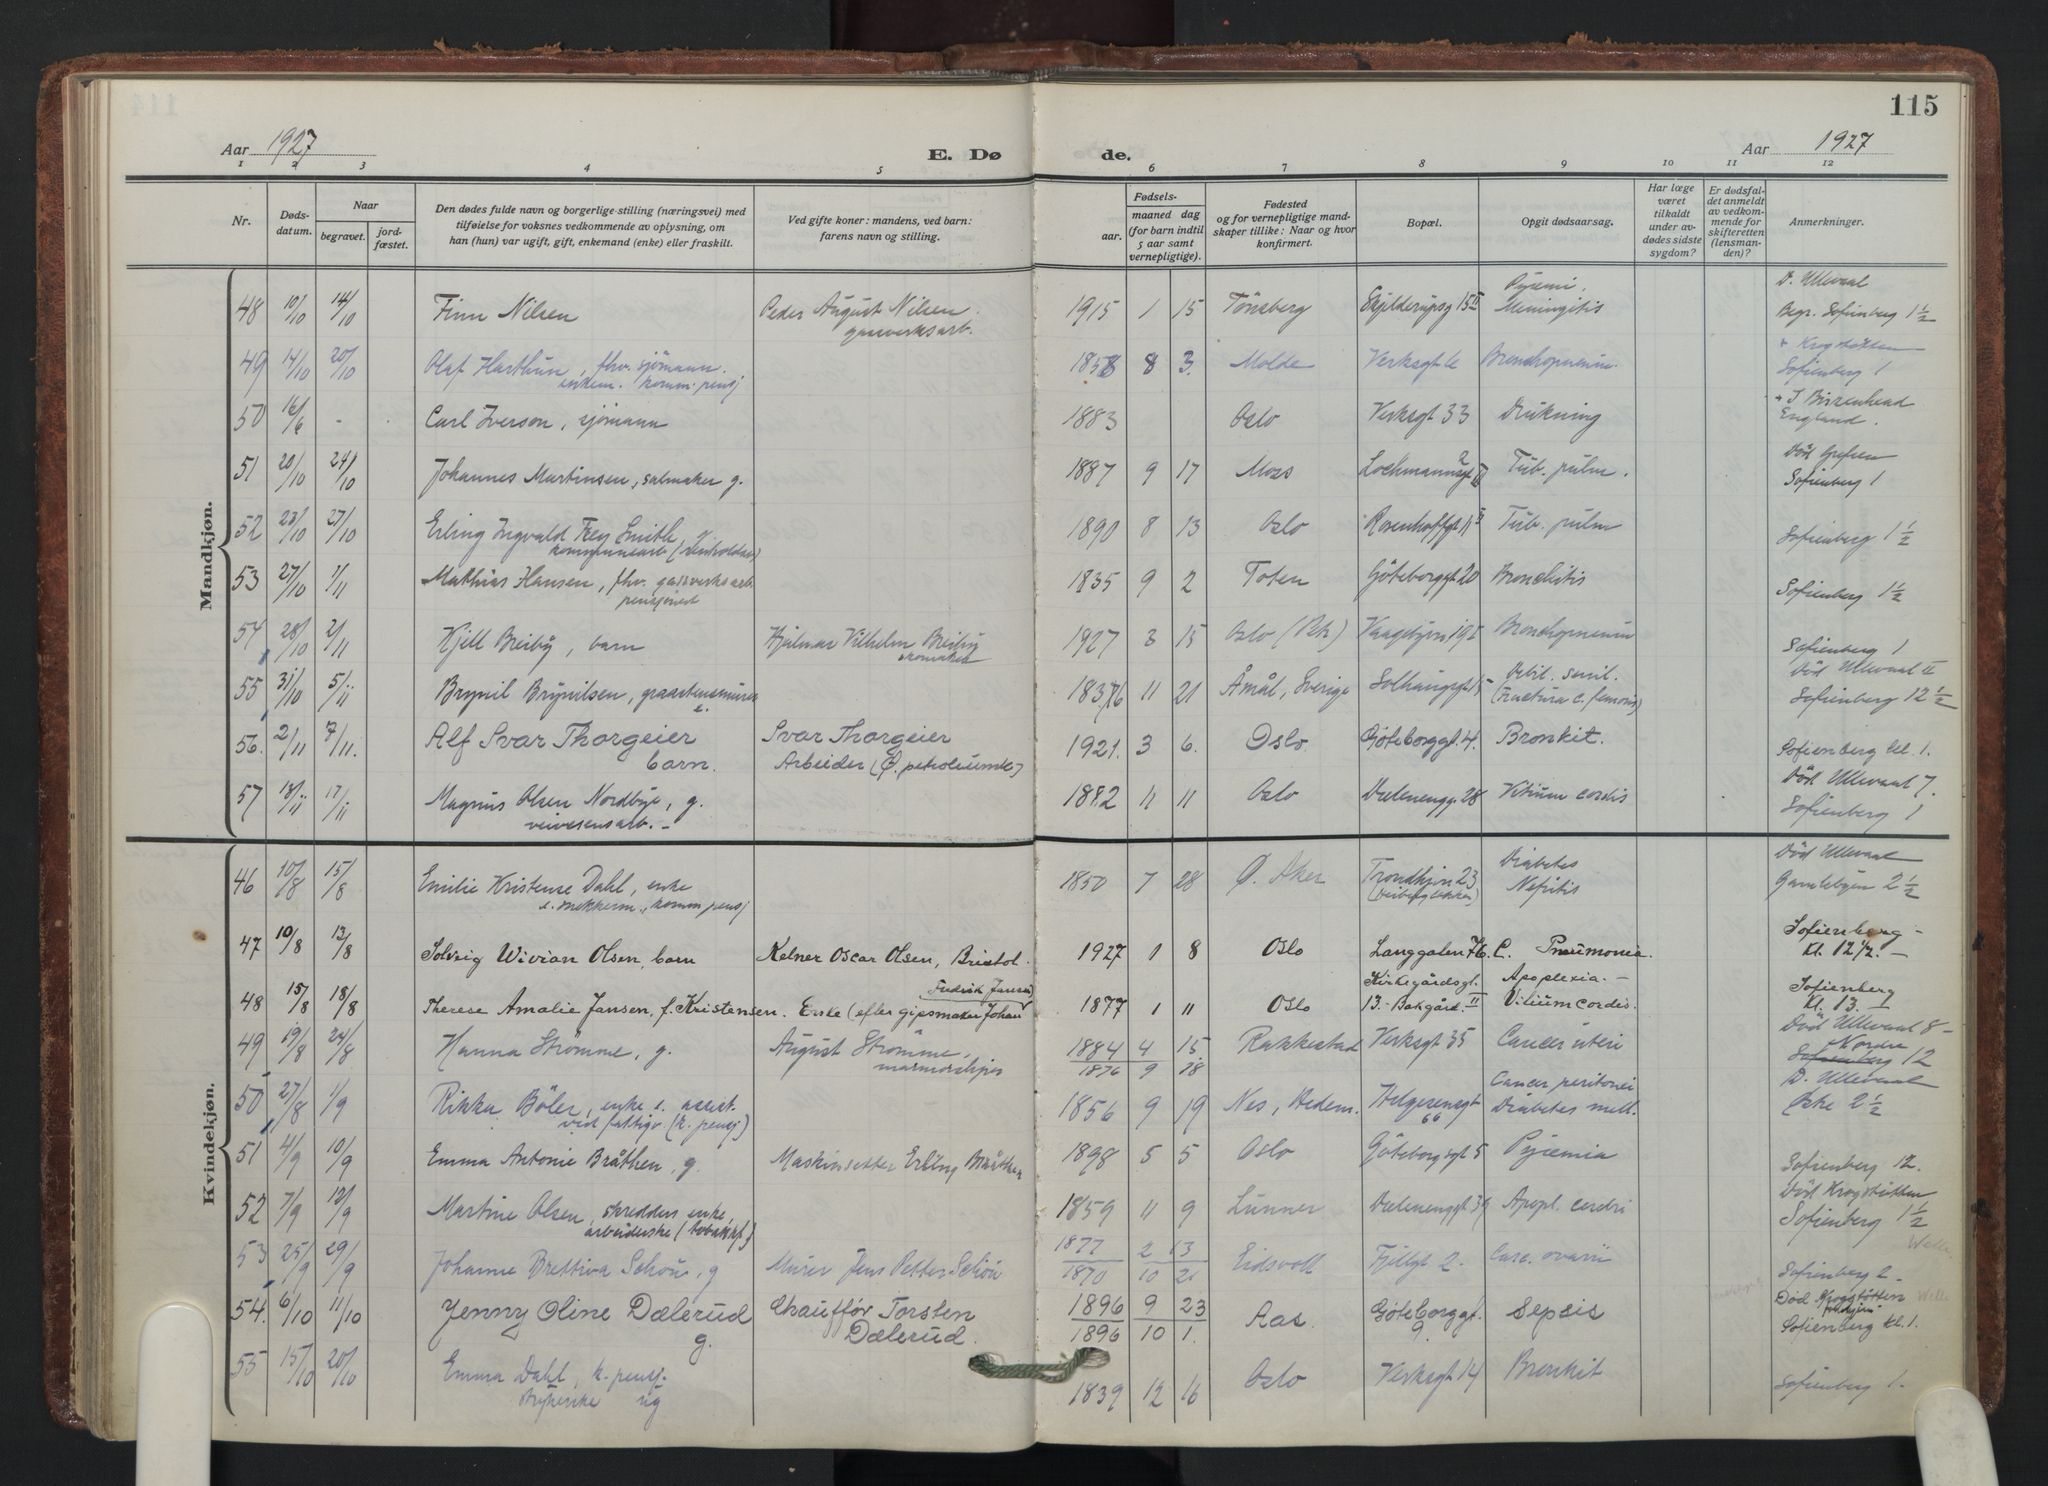 115
Aar 1927 E. Dø de. Aar 1927
1 2 3 4 5 6 7 8 9 10 11 12
Nr.
Døds-
datum.
Naar
begravet.
jord-
fæstet.
Den dødes fulde navn og borgerlige stilling (næringsvei) med
tilføielse for voksnes vedkommende av oplysning, om
han (hun) var ugift, gift, enkemand (enke) eller fraskilt.
Ved gifte koner: mandens, ved barn:
farens navn og stilling.
Fødsels-
aar.
maaned dag
(for barn indtil
5 aar samt
vernepligtige).
Fødested
og for vernepligtige mand-
skaper tillike: Naar og hvor
konfirmert.
Bopæl.
Opgit dødsaarsag.
Har læge
været
tilkaldt
under av-
dødes sidste
sygdom?
Er dødsfal-
det anmeldt
av vedkom-
mende for
skifteretten
(lensman-
den)?
Anmerkninger.
Mandkjøn.
48 10/10 14/10 Finn Nilsen Peder August Nilsen 1915 1 15 Tönsberg Skjelderupsg 15 II Pyemi. D. Ullevaal
gassverksarb. Meningitis Begr. Sofienberg 1 1/2
49 14/10 20/10 Olaf Harthun, fhv. sjömann. 8 3. Molde Verksgt Bronchopneum. + Krogstötten
enkem. komm. pensj Sofienberg 1
50 16/6 - Carl Iverson, sjömann 1883 Oslo Verksgt 33 Drukning + I Birzenhead
England.
51 20/10 24/10 Johannes Martinsen, salmaker g. 1887 9 17 Moss Tub. pulm. Död Grefsen
Sofienberg 1
52 23/10 27/10 Erling Ingvald Frey Smith, g 1890 8 13 Oslo Rosenhoffgt 11 Tub. pulm Sofienberg 1 1/2
kommunearb (Renholdsv)
53 27/10 1/11 Mathias Hansen, fhv. gassverksarb. 1835 9 2 Toten Göteborggt 20 Bronchitis Sofienberg 1 1/2
pensjonist
54 28/10 2/11 Kjell Breiby, barn Hjalmar Vilhelm Breiby 1927 3 15 Oslo Bronchopneum Sofienberg 1
skomaker
55 31/10 5/11 Brynil Brynilsen, graastensmurer 11 21 Åmål, Sverige Solhauggt 15 Debil. senil. Död Ullevaal II
e. (Fractura c. femoris) Sofienberg 12 1/2
56. 2/11 7/11. Alf Svar Thorgeier Svar Thorgeier 1921. 3 6. Oslo. Göteborggt. 4. Bronkit. Sofienberg kl. 1.
barn. Arbeider (Ø. petroleumk)
57 13/11 17/11 Magnus Olsen Nordbye, g. 1882 11 11 Oslo Dælenengg. 28 Vitium cordis Död Ullevaal 7.
veivesensarb. - Sofienberg 1
Kvindekjøn.
46 10/8 15/8 Emilie Kristense Dahl, enke 1850 7 28 Ø. Aker Trondhjvn 23 Diabetes Död Ullevaal
e. snekkerm., komm pensj Nefritis Gamlebyen 2 1/2
47 10/8 13/8 Solveig Wivian Olsen, barn Kelner Oscar Olsen, Bristol. 1927 1 8 Oslo Langgaten 76. C. Pneumonia. Sofienberg -
Kl. 12 1/2. -
48 15/8 18/8 Therese Amalie Jansen, f. Kristensen. Enke (efter gipsmaker Johan Fredrik Jansen) 1877 1 11 Oslo Kirkegårdsgt. Apoplexia. - Sofienberg
13. - Bakgård. II Vitium cordis. Kl. 13. -
49 19/8 24/8 Hanna Strömme, g. August Strömme, 1884 4 15. Rakkestad Verksgt 35 Cancer uteri Död Ullevaal 8 -
marmorsliper 1876 9 18 Nordre
Sofienberg 12
50 27/8 1/9 Rikka Böler, enke e. assist. 1856 9 19 Nes, Hedem. Helgesensgt Cancer peritonei D. Ullevaal
ved fattigv (k. pensj) 66 Diabetes mell. Oske 2 1/2
51 4/9 10/9 Emma Antonie Bråthen, g. Maskinsetter Erling Bråthen 1898 5 5 Oslo Göteborgsgt 5 Pyæmia Sofienberg 12.
52 7/9 12/9 Martine Olsen, skredders enke, 1859 11 9 Lunner Dælenenggt 39 Apopl. cerebri Död Krogstötten
arbeiderske (tobakkf.) Sofienberg 1 1/2
53 25/9 29/9 Johanne Brettiva Schou, g Murer Jens Petter Schou 1877 2 13 Eidsvoll Fjellgt 2. Carc. ovarii Sofienberg 2 -
1870 10 21
54. 6/10 11/10 Jenny Oline Dælerud Chaufför Torsten 1896 9 23 Aas. Göteborggt. Sepsis Död Krogstötten
g. Dælerud. 1896 10 1. 9. Sofienberg kl. 1.
55 15/10 20/10 Emma Dahl, k. pensj. 1839 12 16 Oslo Verksgt 14 Bronkit Sofienberg 1.
Strykerske ug